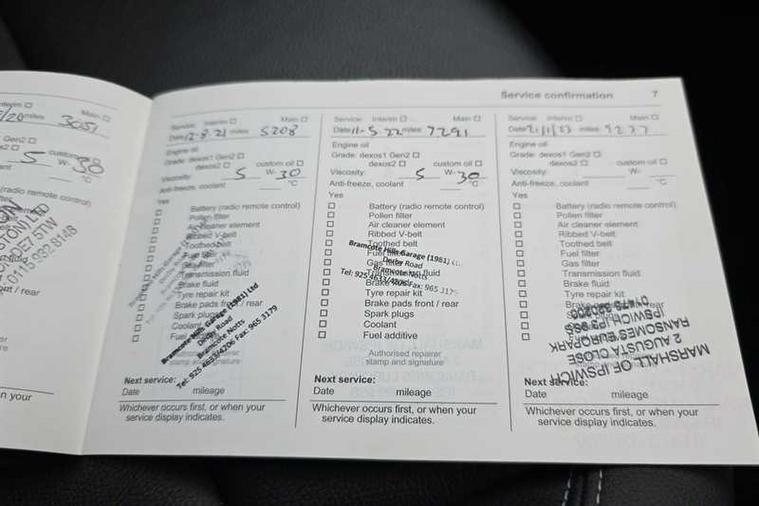 Service confirmation 7
Main
3051
Gen2
5 W- 30
(radio remote control)
0115 932 8148
rear
n your
Service: Interim Main
Date 12-8-21 miles 5208
Engine oil
Grade: dexos1 Gen2
dexos2 custom oil
Viscosity 5 W- 30
Anti-freeze, coolant °C
Yes
Battery (radio remote control)
Pollen filter
Air cleaner element
Ribbed V-belt
Toothed belt
Transmission fluid
Brake fluid
Tyre repair kit
Brake pads front / rear
Spark plugs
Coolant
Fuel additive
Bramcote Hills Garage (1981) Ltd
Derby Road
Bramcote Notts
Tel: 925 4633/4206 Fax: 965 3179
Authorised repairer
stamp and signature
Next service:
Date mileage
Whichever occurs first, or when your
service display indicates.
Service: Interim Main
Date 11-5-22 miles 7291
Engine oil
Grade: dexos1 Gen2
dexos2 custom oil
Viscosity 5 W- 30
Anti-freeze, coolant °C
Yes
Battery (radio remote control)
Pollen filter
Air cleaner element
Ribbed V-belt
Toothed belt
Fuel filter
Gas filter
Transmission fluid
Brake fluid
Tyre repair kit
Brake pads front / rear
Spark plugs
Coolant
Fuel additive
Bramcote Hills Garage (1981)
Derby Road
Bramcote Notts
Tel: 925 4633/4206 Fax: 965 3179
Authorised repairer
stamp and signature
Next service:
Date mileage
Whichever occurs first, or when your
service display indicates.
Service: Interim Main
Date miles 9277
Engine oil
Grade: dexos1 Gen2
dexos2 custom oil
Viscosity W-
Anti-freeze, coolant °C
Yes
Battery (radio remote control)
Pollen filter
Air cleaner element
Ribbed V-belt
Toothed belt
Fuel filter
Gas filter
Transmission fluid
Brake fluid
Tyre repair kit
Brake pads front / rear
MARSHALL OF IPSWICH
2 AUGUSTA CLOSE
RANSOMES EUROPARK
IPSWICH IP3 9SS
Next service:
Date mileage
Whichever occurs first, or when your
service display indicates.